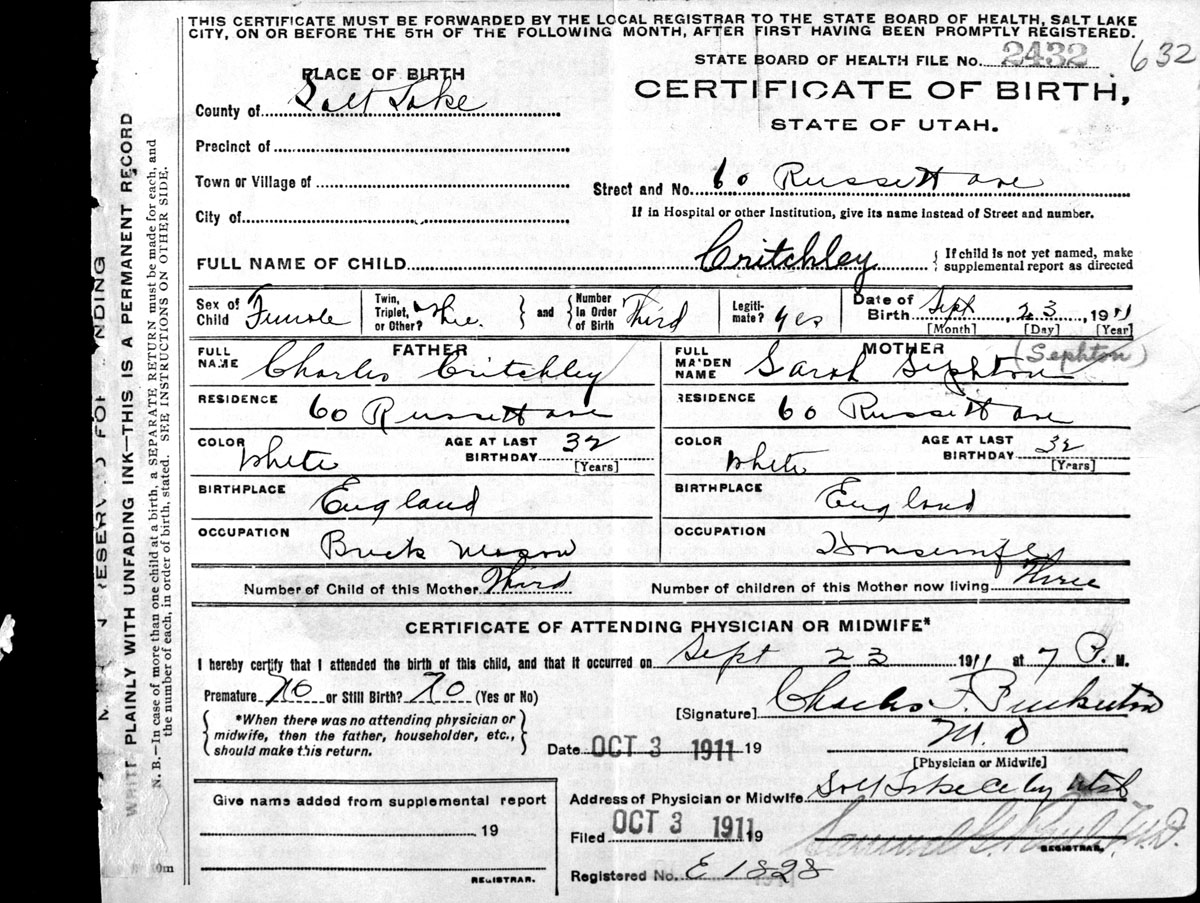 THIS CERTIFICATE MUST BE FORWARDED BY THE LOCAL REGISTRAR TO THE STATE BOARD OF HEALTH, SALT LAKE
CITY, ON OR BEFORE THE 5TH OF THE FOLLOWING MONTH, AFTER FIRST HAVING BEEN PROMPTLY REGISTERED.
STATE BOARD OF HEALTH FILE No. 2432 632
PLACE OF BIRTH
CERTIFICATE OF BIRTH,
County of Salt Lake
STATE OF UTAH.
Precinct of
Town or Village of
Street and No. 60 Russett ave
City of
If in Hospital or other Institution, give its name instead of Street and number.
FULL NAME OF CHILD Critchley { If child is not yet named, make
supplemental report as directed
Sex of
Child Female
Twin,
Triplet,
or Other?
and
Number
in Order
of Birth Third
Legiti-
mate? yes
Date of
Birth Sept 23, 1911
[Month] [Day] [Year]
FATHER
FULL
NAME Charles Critchley
RESIDENCE 60 Russett ave
COLOR White
AGE AT LAST
BIRTHDAY 32
[Years]
BIRTHPLACE England
OCCUPATION Brick Mason
MOTHER (Sephton)
FULL
MAIDEN
NAME Sarah Sephton
RESIDENCE 60 Russett ave
COLOR White
AGE AT LAST
BIRTHDAY 32
[Years]
BIRTHPLACE England
OCCUPATION Housewife
Number of Child of this Mother Third
Number of children of this Mother now living Three
CERTIFICATE OF ATTENDING PHYSICIAN OR MIDWIFE*
I hereby certify that I attended the birth of this child, and that it occurred on Sept 23 1911 at 7 P. M.
Premature No or Still Birth? No (Yes or No)
*When there was no attending physician or
midwife, then the father, householder, etc.,
should make this return.
[Signature] Charles F. Pinkerton
M. D
[Physician or Midwife]
Date OCT 3 1911 19
Give name added from supplemental report
19
REGISTRAR.
Address of Physician or Midwife Salt Lake City Utah
Filed OCT 3 1911 19
Samuel G. Paul M.D.
REGISTRAR.
Registered No. E 1828
WRITE PLAINLY WITH UNFADING INK—THIS IS A PERMANENT RECORD
N. B.—In case of more than one child at a birth, a SEPARATE RETURN must be made for each, and
the number of each, in order of birth, stated. SEE INSTRUCTIONS ON OTHER SIDE.